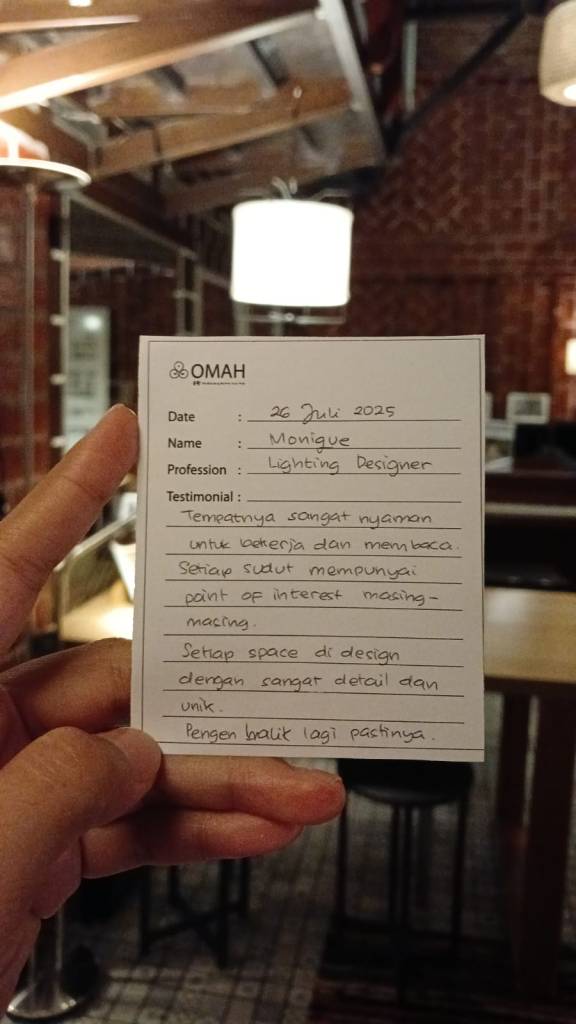 OMAH
Date : 26 Juli 2025
Name : Monique
Profession : Lighting Designer
Testimonial :
Tempatnya sangat nyaman
untuk bekerja dan membaca.
Setiap sudut mempunyai
point of interest masing-
masing.
Setiap space di design
dengan sangat detail dan
unik.
Pengen balik lagi pastinya.